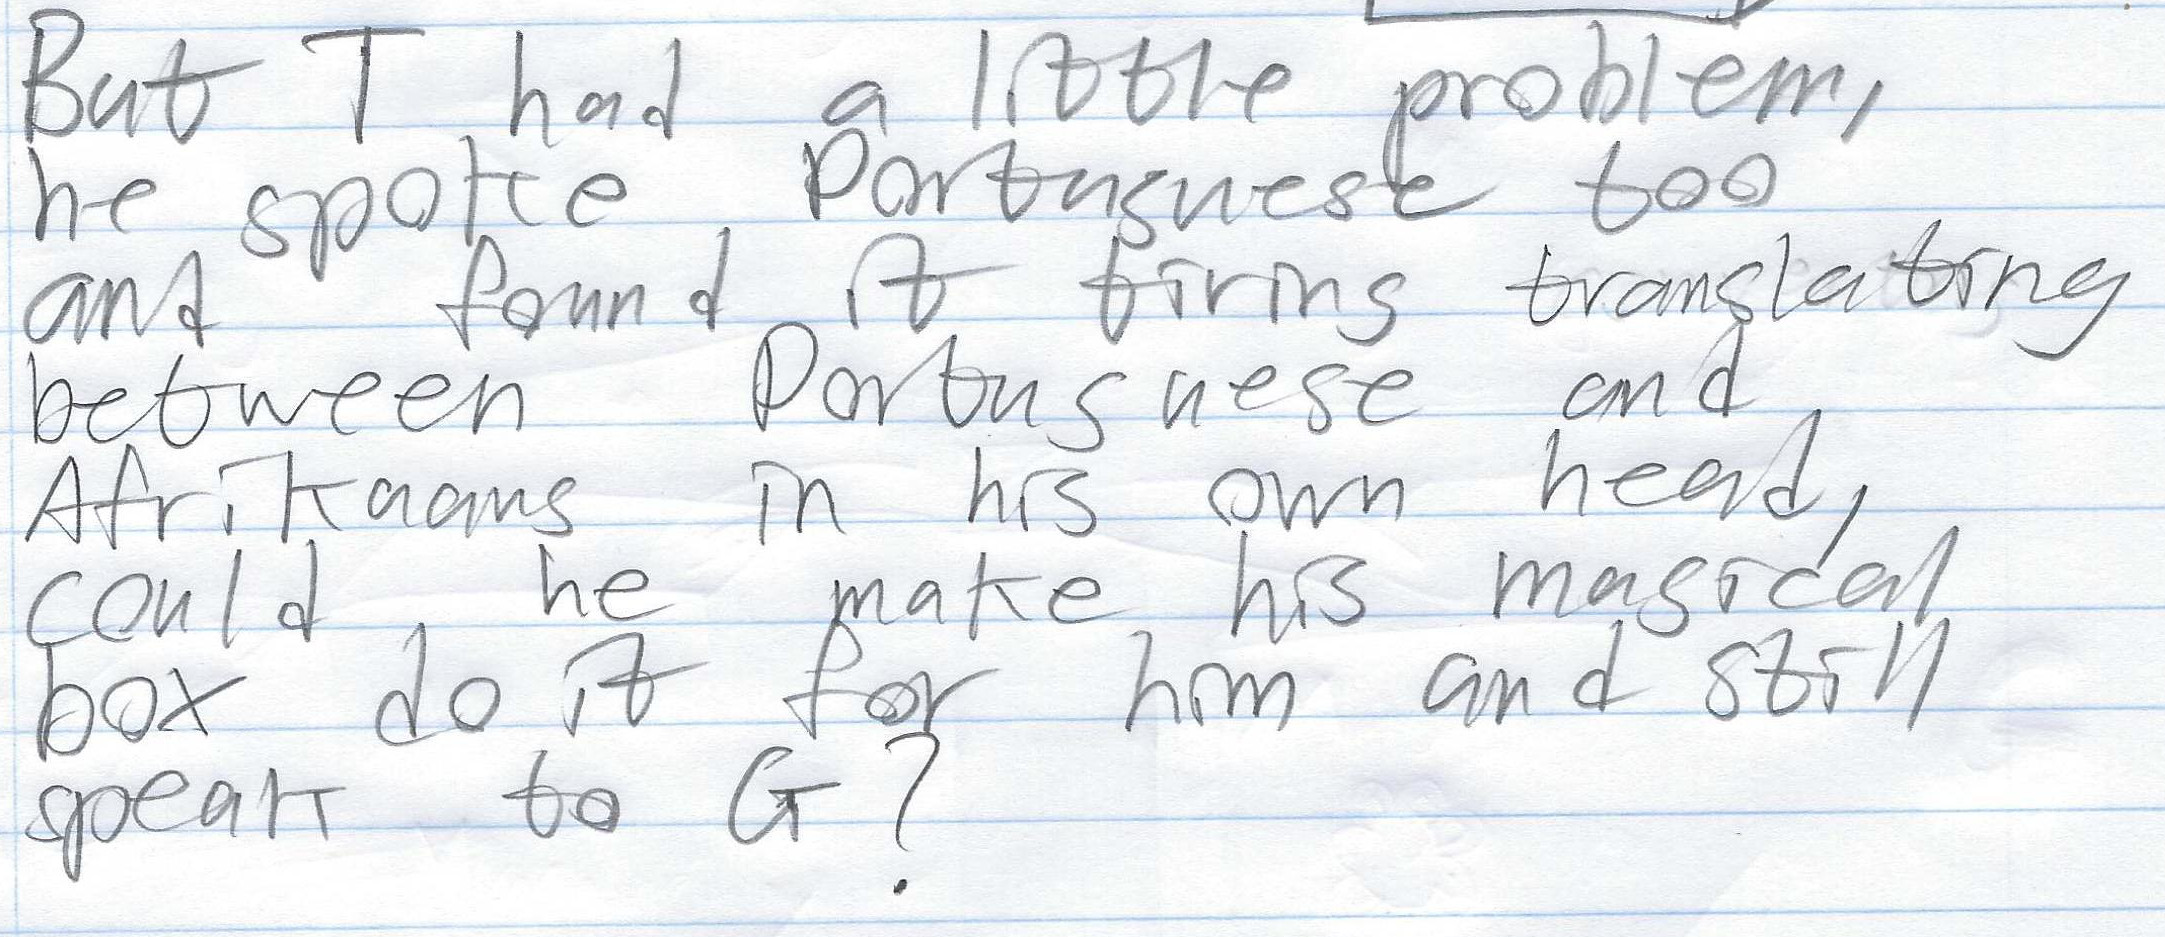 But T had a little problem,
he spoke Portuguese too
and found it tiring translating
between Portuguese and
Afrikaans in his own head,
could he make his magical
box do it for him and still
speak to G?